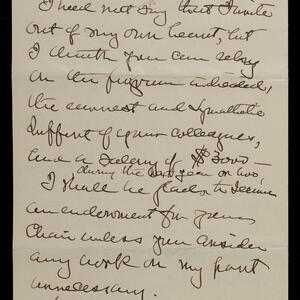 I need not say that I write
out of my own heart, but
I think you can rely
on the program indicated,
the earnest and sympathetic
support of your colleagues,
and a salary of $3000—
during the next year or two,
I shall be glad to secure
an endowment for your
Chair unless you consider
any work on my part
unnecessary.